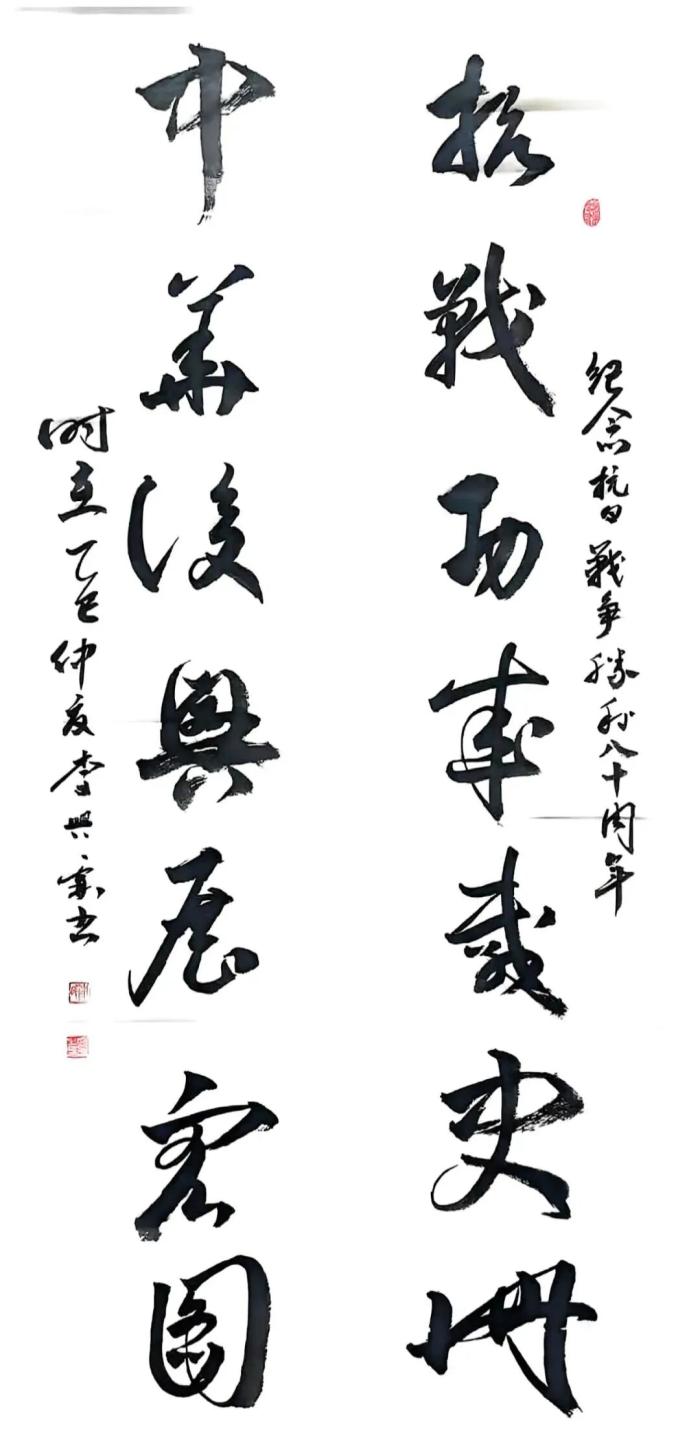 紀念抗日戰爭勝利八十周年
抗戰功成載史冊
中華復興展宏圖
时在乙巳仲夏李興书